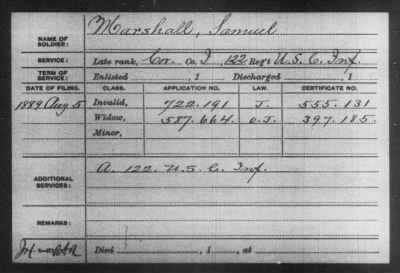 NAME OF SOLDIER: Marshall, Samuel
SERVICE: Late rank, Cor. Co. I, 122 Reg't U.S.C. Inf.
TERM OF SERVICE: Enlisted , 1 Discharged , 1
DATE OF FILING. CLASS. APPLICATION NO. LAW. CERTIFICATE NO.
1889 Aug 5 Invalid, 722.191 J. 555.131
Widow, 587.664 O.J. 397.185.
Minor,
ADDITIONAL SERVICES: A. 122. U.S.C. Inf.
REMARKS:
Died , 1 , at